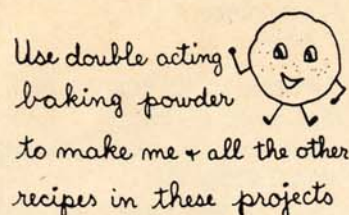 Use double acting
baking powder
to make me + all the other
recipes in these projects